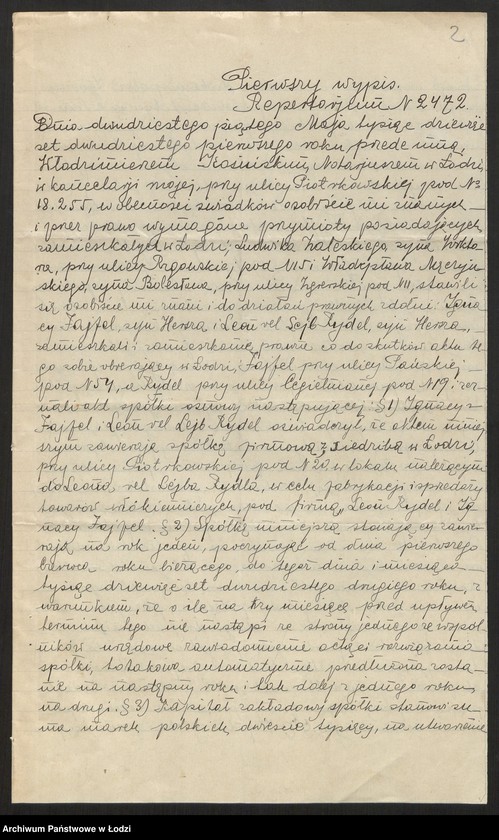 2
Pierwszy wypis.
Repertorjum N 2472.
Dnia dwudziestego piątego Maja tysiąc dziewięć
set dwudziestego pierwszego roku, przede mną,
Włodzimierzem Kosińskim, Notarjuszem w Łodzi,
w kancelarji mojej, przy ulicy Piotrkowskiej pod №
18.255, w obecności świadków osobiście mi znanych
i przez prawo wymagane przymioty posiadających
zamieszkałych w Łodzi: Ludwika Zaleskiego, syna Wikto
ra, przy ulicy pod i Władysława
syna Bolesława, przy ulicy Zgierskiej pod stawili
się osobiście mi znani i do działań prawnych zdolni: Igna
cy Fajfel, syn Hersza i Leon vel Lejb Rydel, syn Hersza,
zamieszkali i zamieszkanie prawne co do skutków aktu te
go sobie obierający w Łodzi, Fajfel przy ulicy Pańskiej
pod N 54, a Rydel przy ulicy Cegielnianej pod N 19, i zez
nali akt spółki osnowy następującej: § 1) Ignacy
Fajfel i Leon vel Lejb Rydel oświadczyli, że aktem niniej
szym zawierają spółkę firmową z siedzibą w Łodzi,
przy ulicy Piotrkowskiej pod N 20, w lokalu należącym
do Leona vel Lejba Rydla, w celu fabrykacji i sprzedaży
towarów włókienniczych, pod firmą „Leon Rydel i Ig
nacy Fajfel. § 2) Spółkę niniejszą stawający zawie
rają na rok jeden, poczynając od dnia pierwszego
czerwca roku bieżącego, do tegoż dnia i miesiąca
tysiąc dziewięć set dwudziestego drugiego roku, z
warunkiem, że o ile na trzy miesiące przed upływem
terminu tego nie nastąpi ze strony jednego ze wspól
ników urzędowe zawiadomienie o chęci rozwiązania
spółki, to takowa automatycznie przedłużona zosta
nie na następny rok, i tak dalej z jednego roku
na drugi. § 3) Kapitał zakładowy spółki stanowi su
ma marek polskich dwieście tysięcy, na utworzenie
Archiwum Państwowe w Łodzi